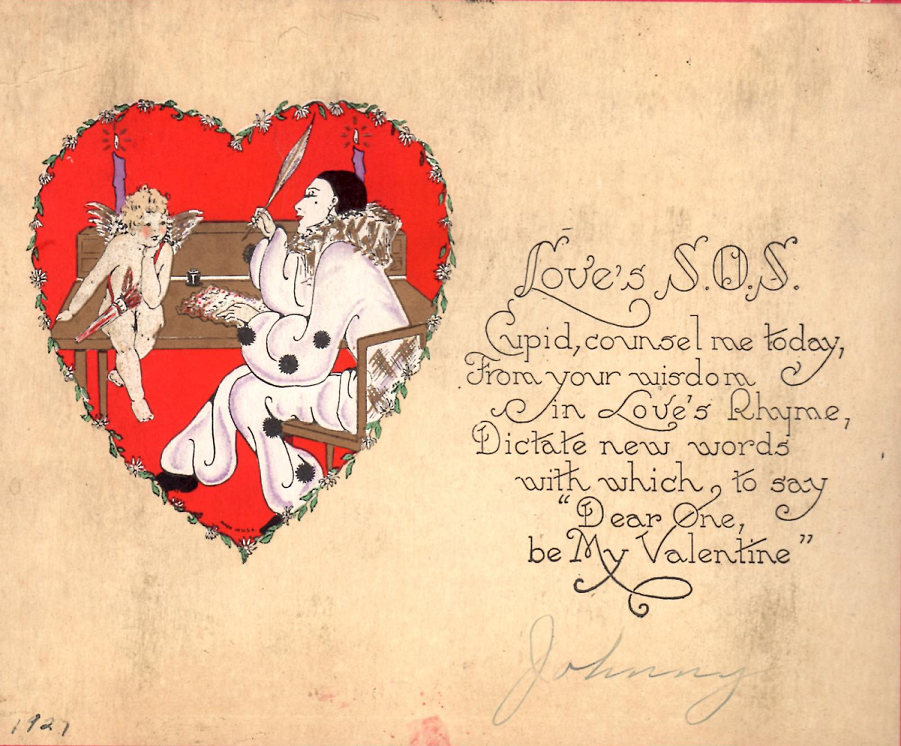 Love's S.O.S.
Cupid, counsel me today,
From your wisdom
in Love's Rhyme,
Dictate new words
with which, to say
"Dear One,
be My Valentine"
Johnny
1927